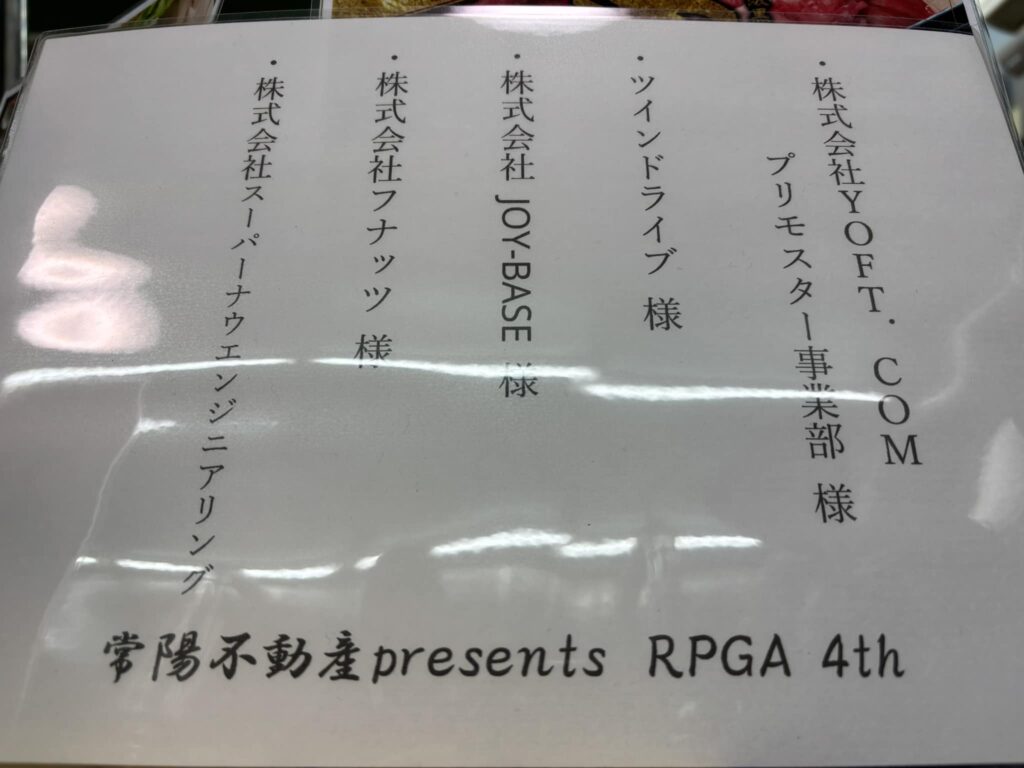 ・株式会社YOFT．COM
プリモスター事業部 様
・ツインドライブ 様
・株式会社 JOY-BASE 様
・株式会社フナッツ 様
・株式会社スーパーナウエンジニアリング
常陽不動産presents RPGA 4th